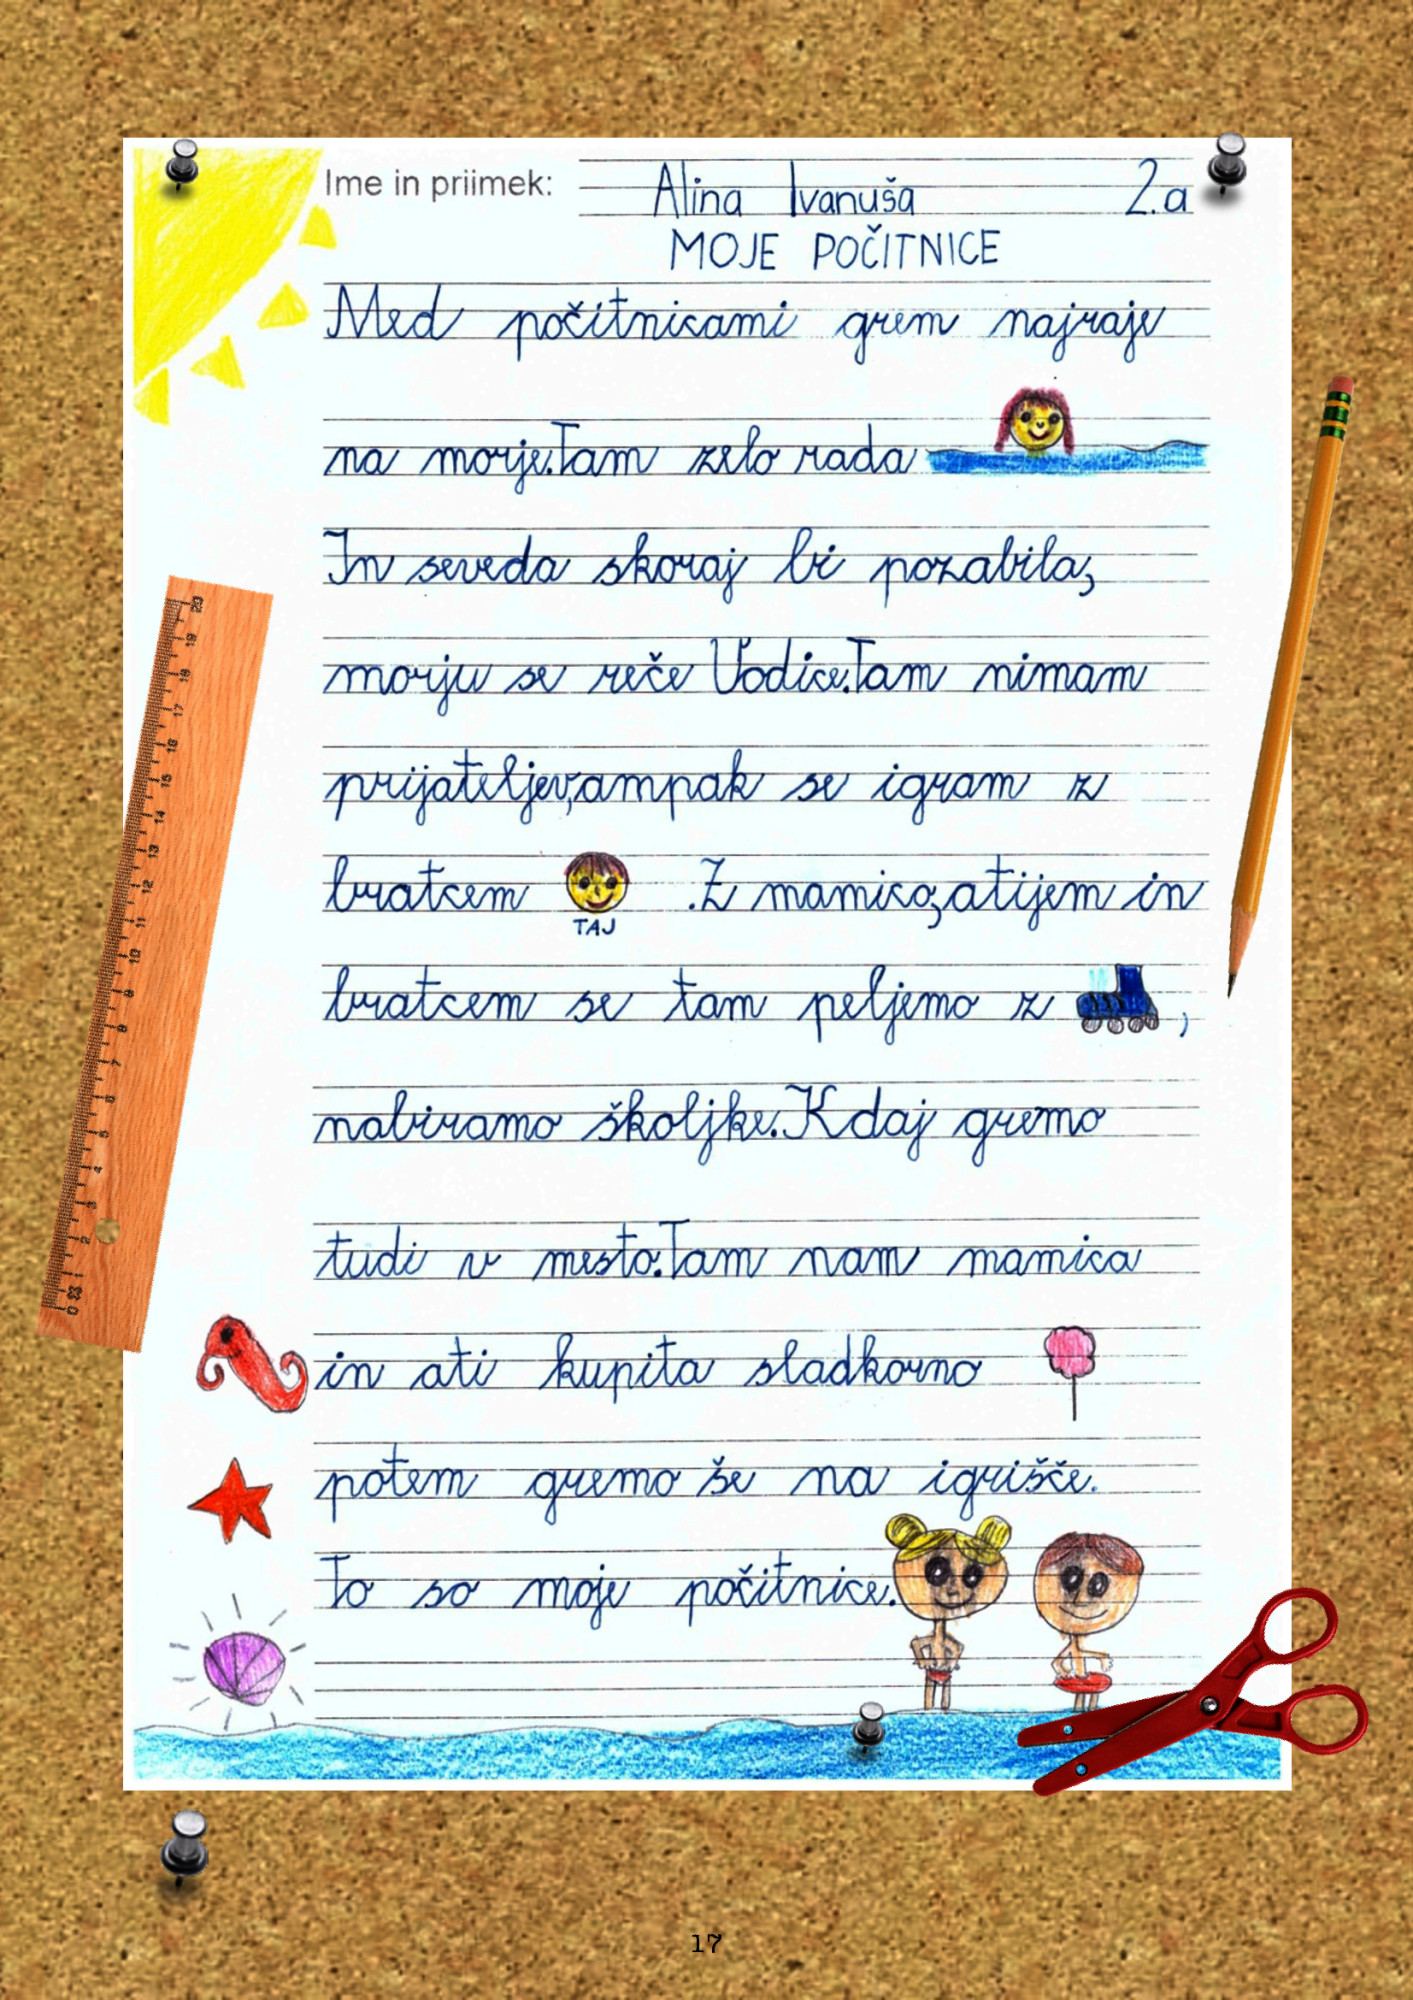 Ime in priimek: Alina Ivanuša 2.a
MOJE POČITNICE
Med počitnicami grem najraje
na morje.Tam zelo rada
In seveda skoraj bi pozabila,
morju se reče Vodice.Tam nimam
prijateljev,ampak se igram z
bratcem .Z mamico,atijem in
TAJ
bratcem se tam peljemo z ,
nabiramo školjke.Kdaj gremo
tudi v mesto.Tam nam mamica
in ati kupita sladkorno
potem gremo še na igrišče.
To so moje počitnice.
17